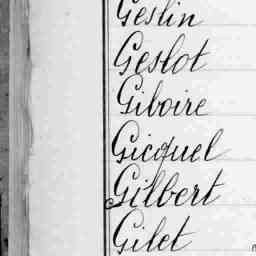 Geslin
Geslot
Giboire
Gicquel
Gilbert
Gilet